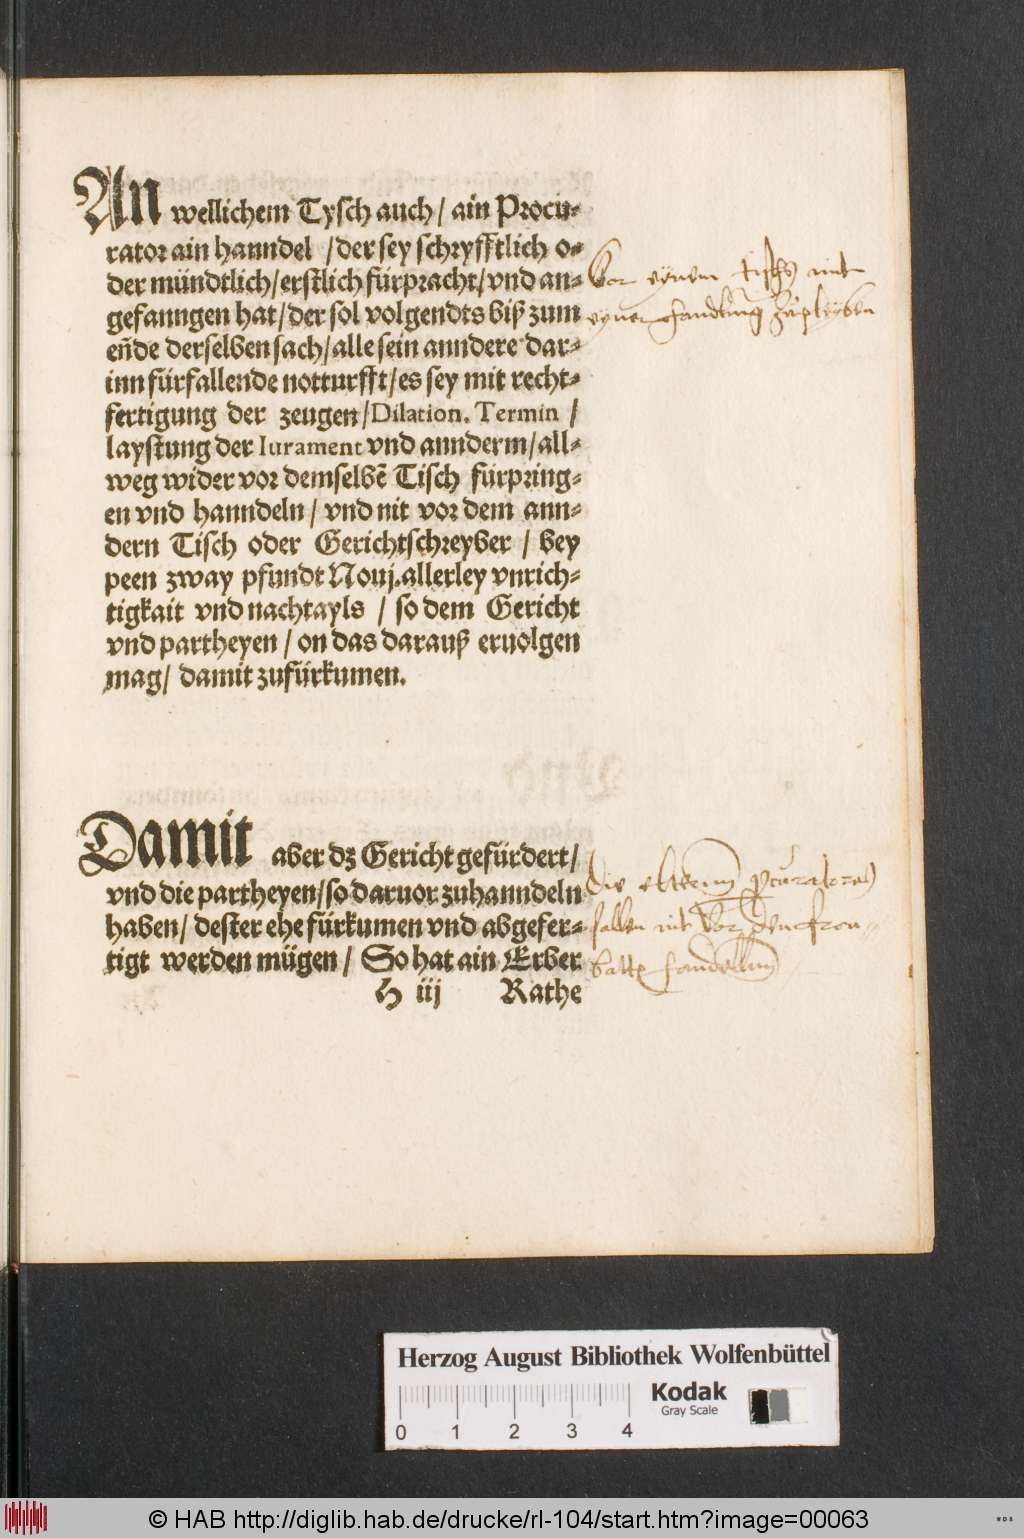 An wellichem Tysch auch / ain Procu⸗
rator ain hanndel / der sey schryfftlich o⸗
der mündtlich / erstlich fürpracht / vnd an⸗
gefanngen hat / der sol volgendts biß zum
eñde derselben sach / alle sein anndere dar⸗
inn fürfallende notturfft / es sey mit recht⸗
fertigung der zeugen / Dilation. Termin /
laystung der Iurament vnd annderm / all⸗
weg wider vor demselbẽ Tisch fürpring⸗
en vnd hanndeln / vnd nit vor dem ann⸗
dern Tisch oder Gerichtschreyber / bey
peen zway pfundt Nouj. allerley vnrich⸗
tigkait vnd nachtayls / so dem Gericht
vnd partheyen / on das darauß eruolgen
mag / damit zufürkumen.
vor eynem tisch mit
eyner handlung
Damit aber dz Gericht gefürdert /
vnd die partheyen / so daruor zuhanndeln
haben / dester ehe fürkumen vnd abgefer⸗
tigt werden mügen / So hat ain Erber
H iij Rathe
die
sollen nit vor
Herzog August Bibliothek Wolfenbüttel
Kodak
Gray Scale
0 1 2 3 4
© HAB http://diglib.hab.de/drucke/rl-104/start.htm?image=00063